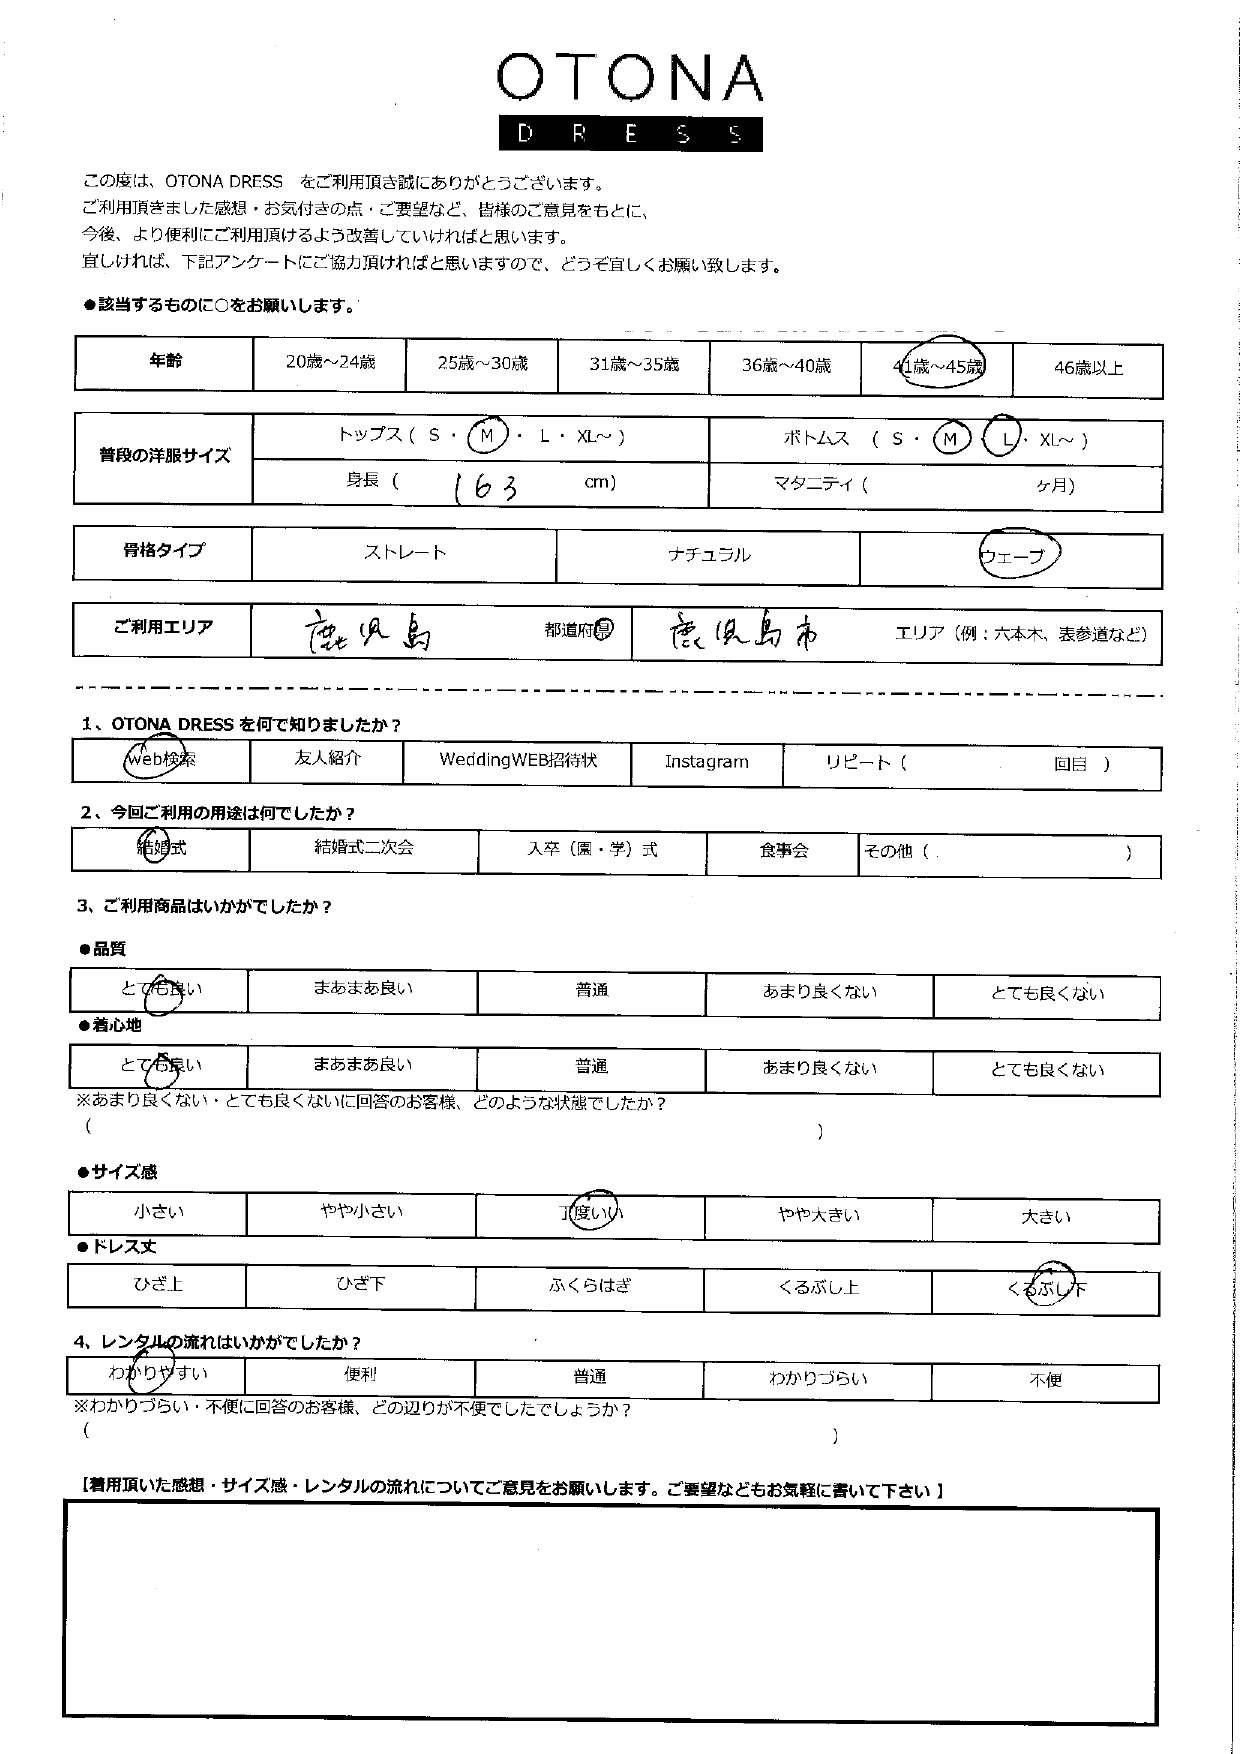 OTONA
DRESS
この度は、OTONA DRESS　をご利用頂き誠にありがとうございます。
ご利用頂きました感想・お気付きの点・ご要望など、皆様のご意見をもとに、
今後、より便利にご利用頂けるよう改善していければと思います。
宜しければ、下記アンケートにご協力頂ければと思いますので、どうぞ宜しくお願い致します。
●該当するものに○をお願いします。
年齢 20歳～24歳 25歳～30歳 31歳～35歳 36歳～40歳 41歳～45歳 46歳以上
普段の洋服サイズ トップス（ S ・ M ・ L ・ XL～ ） ボトムス （ S ・ M ・ L ・ XL～ ）
身長（ 163 cm） マタニティ（ ヶ月）
骨格タイプ ストレート ナチュラル ウェーブ
ご利用エリア 鹿児島 都道府県 鹿児島市 エリア（例：六本木、表参道など）
1、OTONA DRESS を何で知りましたか？
Web検索 友人紹介 WeddingWEB招待状 Instagram リピート（ 回目 ）
2、今回ご利用の用途は何でしたか？
結婚式 結婚式二次会 入卒（園・学）式 食事会 その他（ ）
3、ご利用商品はいかがでしたか？
●品質
とても良い まあまあ良い 普通 あまり良くない とても良くない
●着心地
とても良い まあまあ良い 普通 あまり良くない とても良くない
※あまり良くない・とても良くないに回答のお客様、どのような状態でしたか？
（ ）
●サイズ感
小さい やや小さい 丁度いい やや大きい 大きい
●ドレス丈
ひざ上 ひざ下 ふくらはぎ くるぶし上 くるぶし下
4、レンタルの流れはいかがでしたか？
わかりやすい 便利 普通 わかりづらい 不便
※わかりづらい・不便に回答のお客様、どの辺りが不便でしたでしょうか？
（ ）
【着用頂いた感想・サイズ感・レンタルの流れについてご意見をお願いします。ご要望などもお気軽に書いて下さい 】